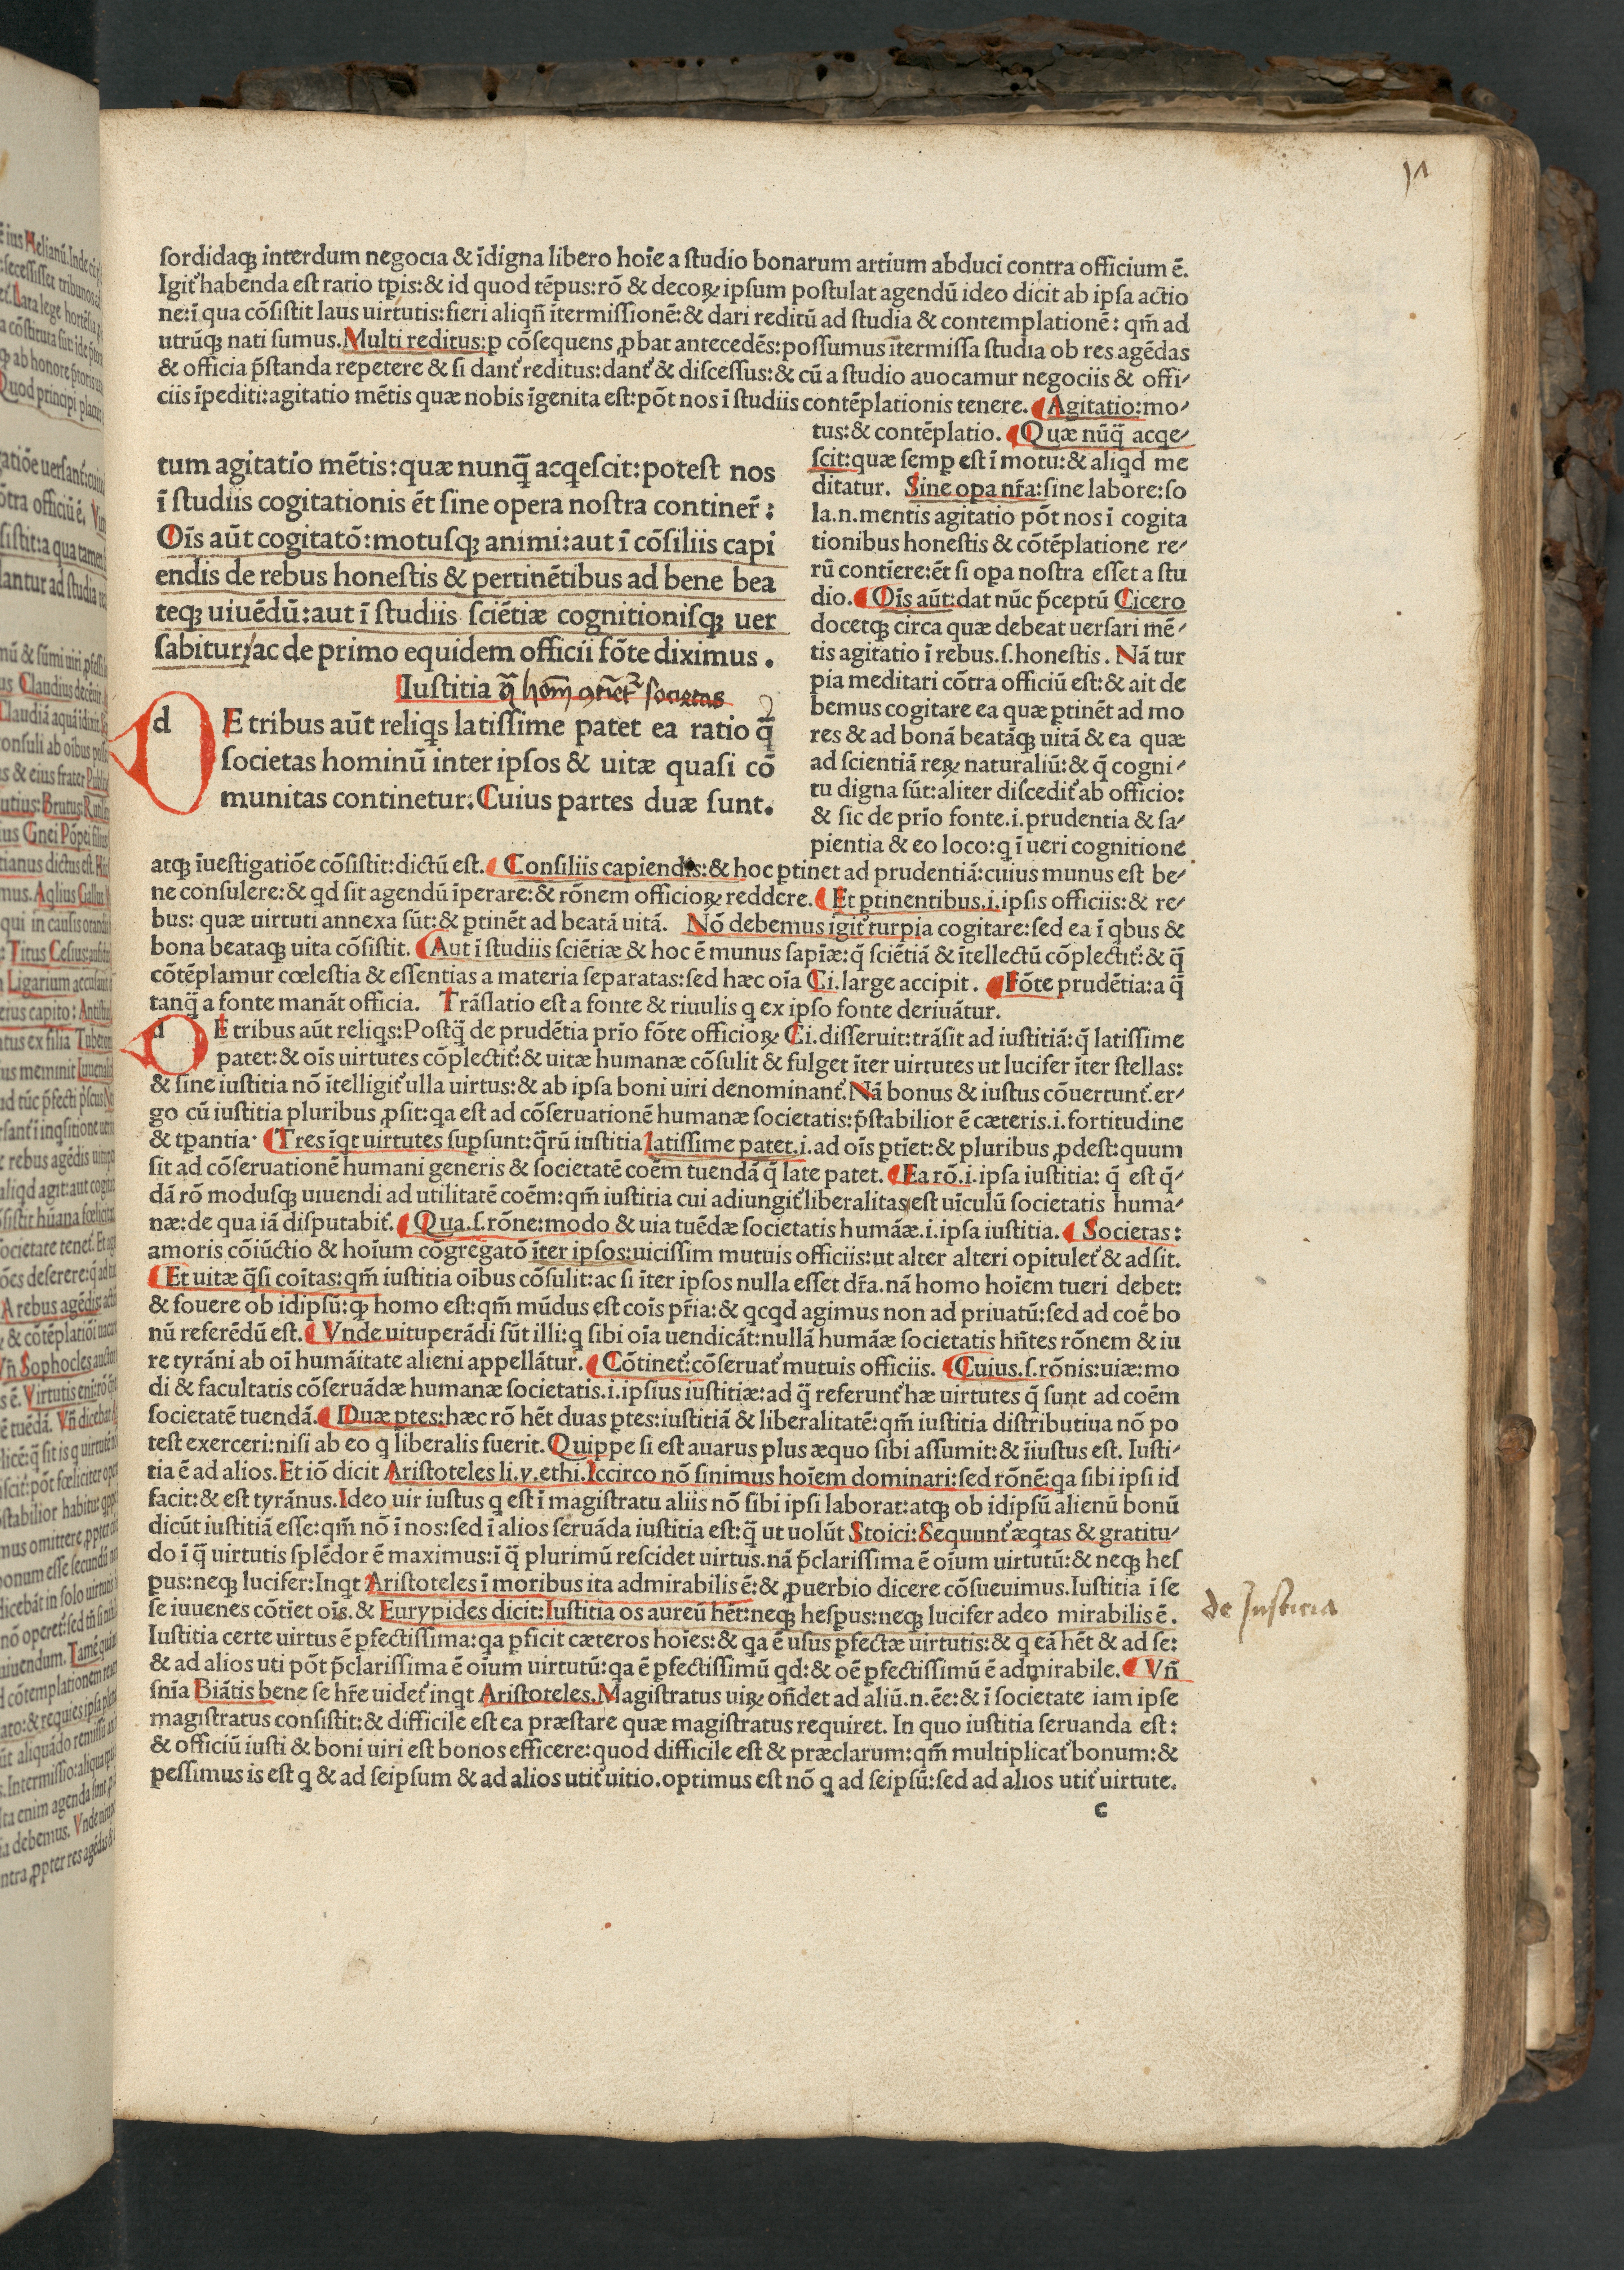 sordidaqꝫ interdum negocia & ĩdigna libero hoĩe a studio bonarum artium abduci contra officium ẽ.
Igiť habenda est ratio tp̃is: & id quod tẽpus: rõ & decoꝝ ipsum postulat agendũ ideo dicit ab ipsa actio
ne: ĩ qua cõsistit laus uirtutis: fieri aliqñ ĩtermissionẽ: & dari reditũ ad studia & contemplationẽ: qm̃ ad
utrũqꝫ nati sumus. Multi reditus: p cõsequens ꝓbat antecedẽs: possumus ĩtermissa studia ob res agẽdas
& officia p̃standa repetere & si danť reditus: danť & discessus: & cũ a studio auocamur negociis & offi⸗
ciis ĩpediti: agitatio mẽtis quæ nobis ĩgenita est: põt nos ĩ studiis contẽplationis tenere. Agitatio: mo⸗
tus: & contẽplatio. Quæ nũq̃ acqe⸗
scit: quæ semꝑ est ĩ motu: & aliqd me
ditatur. Sine oꝑa nr̃a: sine labore: so
la.n. mentis agitatio põt nos ĩ cogita
tionibus honestis & cõtẽplatione re⸗
rũ contĩere: ẽt si oꝑa nostra esset a stu
dio. Oĩs aũt: dat nũc p̃ceptũ Cicero
docetqꝫ circa quæ debeat uersari mẽ⸗
tis agitatio ĩ rebus.s. honestis. Nã tur
pia meditari cõtra officiũ est: & ait de
bemus cogitare ea quæ ꝑtinẽt ad mo
res & ad bonã beatãqꝫ uitã & ea quæ
ad scientiã reꝝ naturaliũ: & q̃ cogni⸗
tu digna sũt: aliter discediť ab officio:
& sic de prĩo fonte.i. prudentia & sa⸗
pientia & eo loco: q ĩ ueri cognitione
tum agitatio mẽtis: quæ nunq̃ acqescit: potest nos
ĩ studiis cogitationis ẽt sine opera nostra continer̃:
Oĩs aũt cogitatõ: motusqꝫ animi: aut ĩ cõsiliis capi
endis de rebus honestis & pertinẽtibus ad bene bea
teqꝫ uiuẽdũ: aut ĩ studiis sciẽtiæ cognitionisqꝫ uer
sabitur: ac de primo equidem officii fõte diximus.
Iustitia q̃ hoĩm ꝯtinet² societas
d E tribus aũt reliqs latissime patet ea ratio q̃
societas hominũ inter ipsos & uitæ quasi cõ
munitas continetur. Cuius partes duæ sunt.
atqꝫ ĩuestigatiõe cõsistit: dictũ est. Consiliis capiendis: & hoc ꝑtinet ad prudentiã: cuius munus est be⸗
ne consulere: & qd sit agendũ ĩperare: & rõnem officioꝝ reddere. Et ꝑtinentibus.i. ipsis officiis: & re⸗
bus: quæ uirtuti annexa sũt: & ꝑtinẽt ad beatã uitã. Nõ debemus igiť turpia cogitare: sed ea ĩ qbus &
bona beataqꝫ uita cõsistit. Aut ĩ studiis sciẽtiæ & hoc ẽ munus sapĩæ: q̃ sciẽtiã & ĩtellectũ cõplectiť: & q̃
cõtẽplamur cœlestia & essentias a materia separatas: sed hæc oĩa Ci. large accipit. Fõte prudẽtia: a q̃
tanq̃ a fonte manãt officia. Trãslatio est a fonte & riuulis q ex ipso fonte deriuãtur.
d E tribus aũt reliqs: Postq̃ de prudẽtia prĩo fõte officioꝝ Ci. disseruit: trãsit ad iustitiã: q̃ latissime
patet: & oĩs uirtutes cõplectiť: & uitæ humanæ cõsulit & fulget ĩter uirtutes ut lucifer ĩter stellas:
& sine iustitia nõ ĩtelligiť ulla uirtus: & ab ipsa boni uiri denominanť. Nã bonus & iustus cõuertunť. er⸗
go cũ iustitia pluribus ꝓsit: qa est ad cõseruationẽ humanæ societatis: p̃stabilior ẽ cæteris.i. fortitudine
& tꝑantia. Tres ĩqt uirtutes suꝑsunt: q̃rũ iustitia latissime patet.i. ad oĩs ꝑtĩet: & pluribus ꝓdest: quum
sit ad cõseruationẽ humani generis & societatẽ coẽm tuendã q̃ late patet. Ea rõ.i. ipsa iustitia: q̃ est q̃⸗
dã rõ modusqꝫ uiuendi ad utilitatẽ coẽm: qm̃ iustitia cui adiungiť liberalitas est uĩculũ societatis huma⸗
næ: de qua iã disputabiť. Qua.s. rõne: modo & uia tuẽdæ societatis humãæ.i. ipsa iustitia. Societas:
amoris cõiũctio & hoĩum cõgregatõ ĩter ipsos: uicissim mutuis officiis: ut alter alteri opituleť & adsit.
Et uitæ q̃si coĩtas: qm̃ iustitia oĩbus cõsulit: ac si ĩter ipsos nulla esset dr̃a. nã homo hoĩem tueri debet:
& fouere ob idipsũ: qꝫ homo est: qm̃ mũdus est coĩs pr̃ia: & qcqd agimus non ad priuatũ: sed ad coẽ bo
nũ referẽdũ est. Vnde uituperãdi sũt illi: q sibi oĩa uendicãt: nullã humãæ societatis hñtes rõnem & iu
re tyrãni ab oĩ humãitate alieni appellãtur. Cõtineť: cõseruať mutuis officiis. Cuius.s. rõnis: uiæ: mo
di & facultatis cõseruãdæ humanæ societatis.i. ipsius iustitiæ: ad q̃ referunť hæ uirtutes q̃ sunt ad coẽm
societatẽ tuendã. Duæ ꝑtes: hæc rõ hẽt duas ꝑtes: iustitiã & liberalitatẽ: qm̃ iustitia distributiua nõ po
test exerceri: nisi ab eo q liberalis fuerit. Quippe si est auarus plus æquo sibi assumit: & ĩiustus est. Iusti⸗
tia ẽ ad alios. Et iõ dicit Aristoteles li.v. ethi. Iccirco nõ sinimus hoĩem dominari: sed rõnẽ: qa sibi ipsi id
facit: & est tyrãnus. Ideo uir iustus q est ĩ magistratu aliis nõ sibi ipsi laborat: atqꝫ ob idipsũ alienũ bonũ
dicũt iustitiã esse: qm̃ nõ ĩ nos: sed ĩ alios seruãda iustitia est: q̃ ut uolũt Stoici: Sequunť æqtas & gratitu⸗
do ĩ q̃ uirtutis splẽdor ẽ maximus: ĩ q̃ plurimũ rescidet uirtus. nã p̃clarissima ẽ oĩum uirtutũ: & neqꝫ hes
pus: neqꝫ lucifer: Inqt Aristoteles ĩ moribus ita admirabilis ẽ: & ꝓuerbio dicere cõsueuimus. Iustitia ĩ se
se iuuenes cõtĩet oĩs. & Eurypides dicit: Iustitia os aureũ hẽt: neqꝫ hesꝑus: neqꝫ lucifer adeo mirabilis ẽ.
de Justicia
Iustitia certe uirtus ẽ ꝑfectissima: qa ꝑficit cæteros hoĩes: & qa ẽ usus ꝑfectæ uirtutis: & q eã hẽt & ad se:
& ad alios uti põt p̃clarissima ẽ oĩum uirtutũ: qa ẽ ꝑfectissimũ qd: & oẽ ꝑfectissimũ ẽ admirabile. Vñ
snĩa Biãtis bene se hr̃e uideť inqt Aristoteles. Magistratus uiꝝ oñdet ad aliũ.n. ẽe: & ĩ societate iam ipse
magistratus consistit: & difficile est ea præstare quæ magistratus requiret. In quo iustitia seruanda est:
& officiũ iusti & boni uiri est bonos efficere: quod difficile est & præclarum: qm̃ multiplicať bonum: &
pessimus is est q & ad seipsum & ad alios utiť uitio. optimus est nõ q ad seipsũ: sed ad alios utiť uirtute.
c